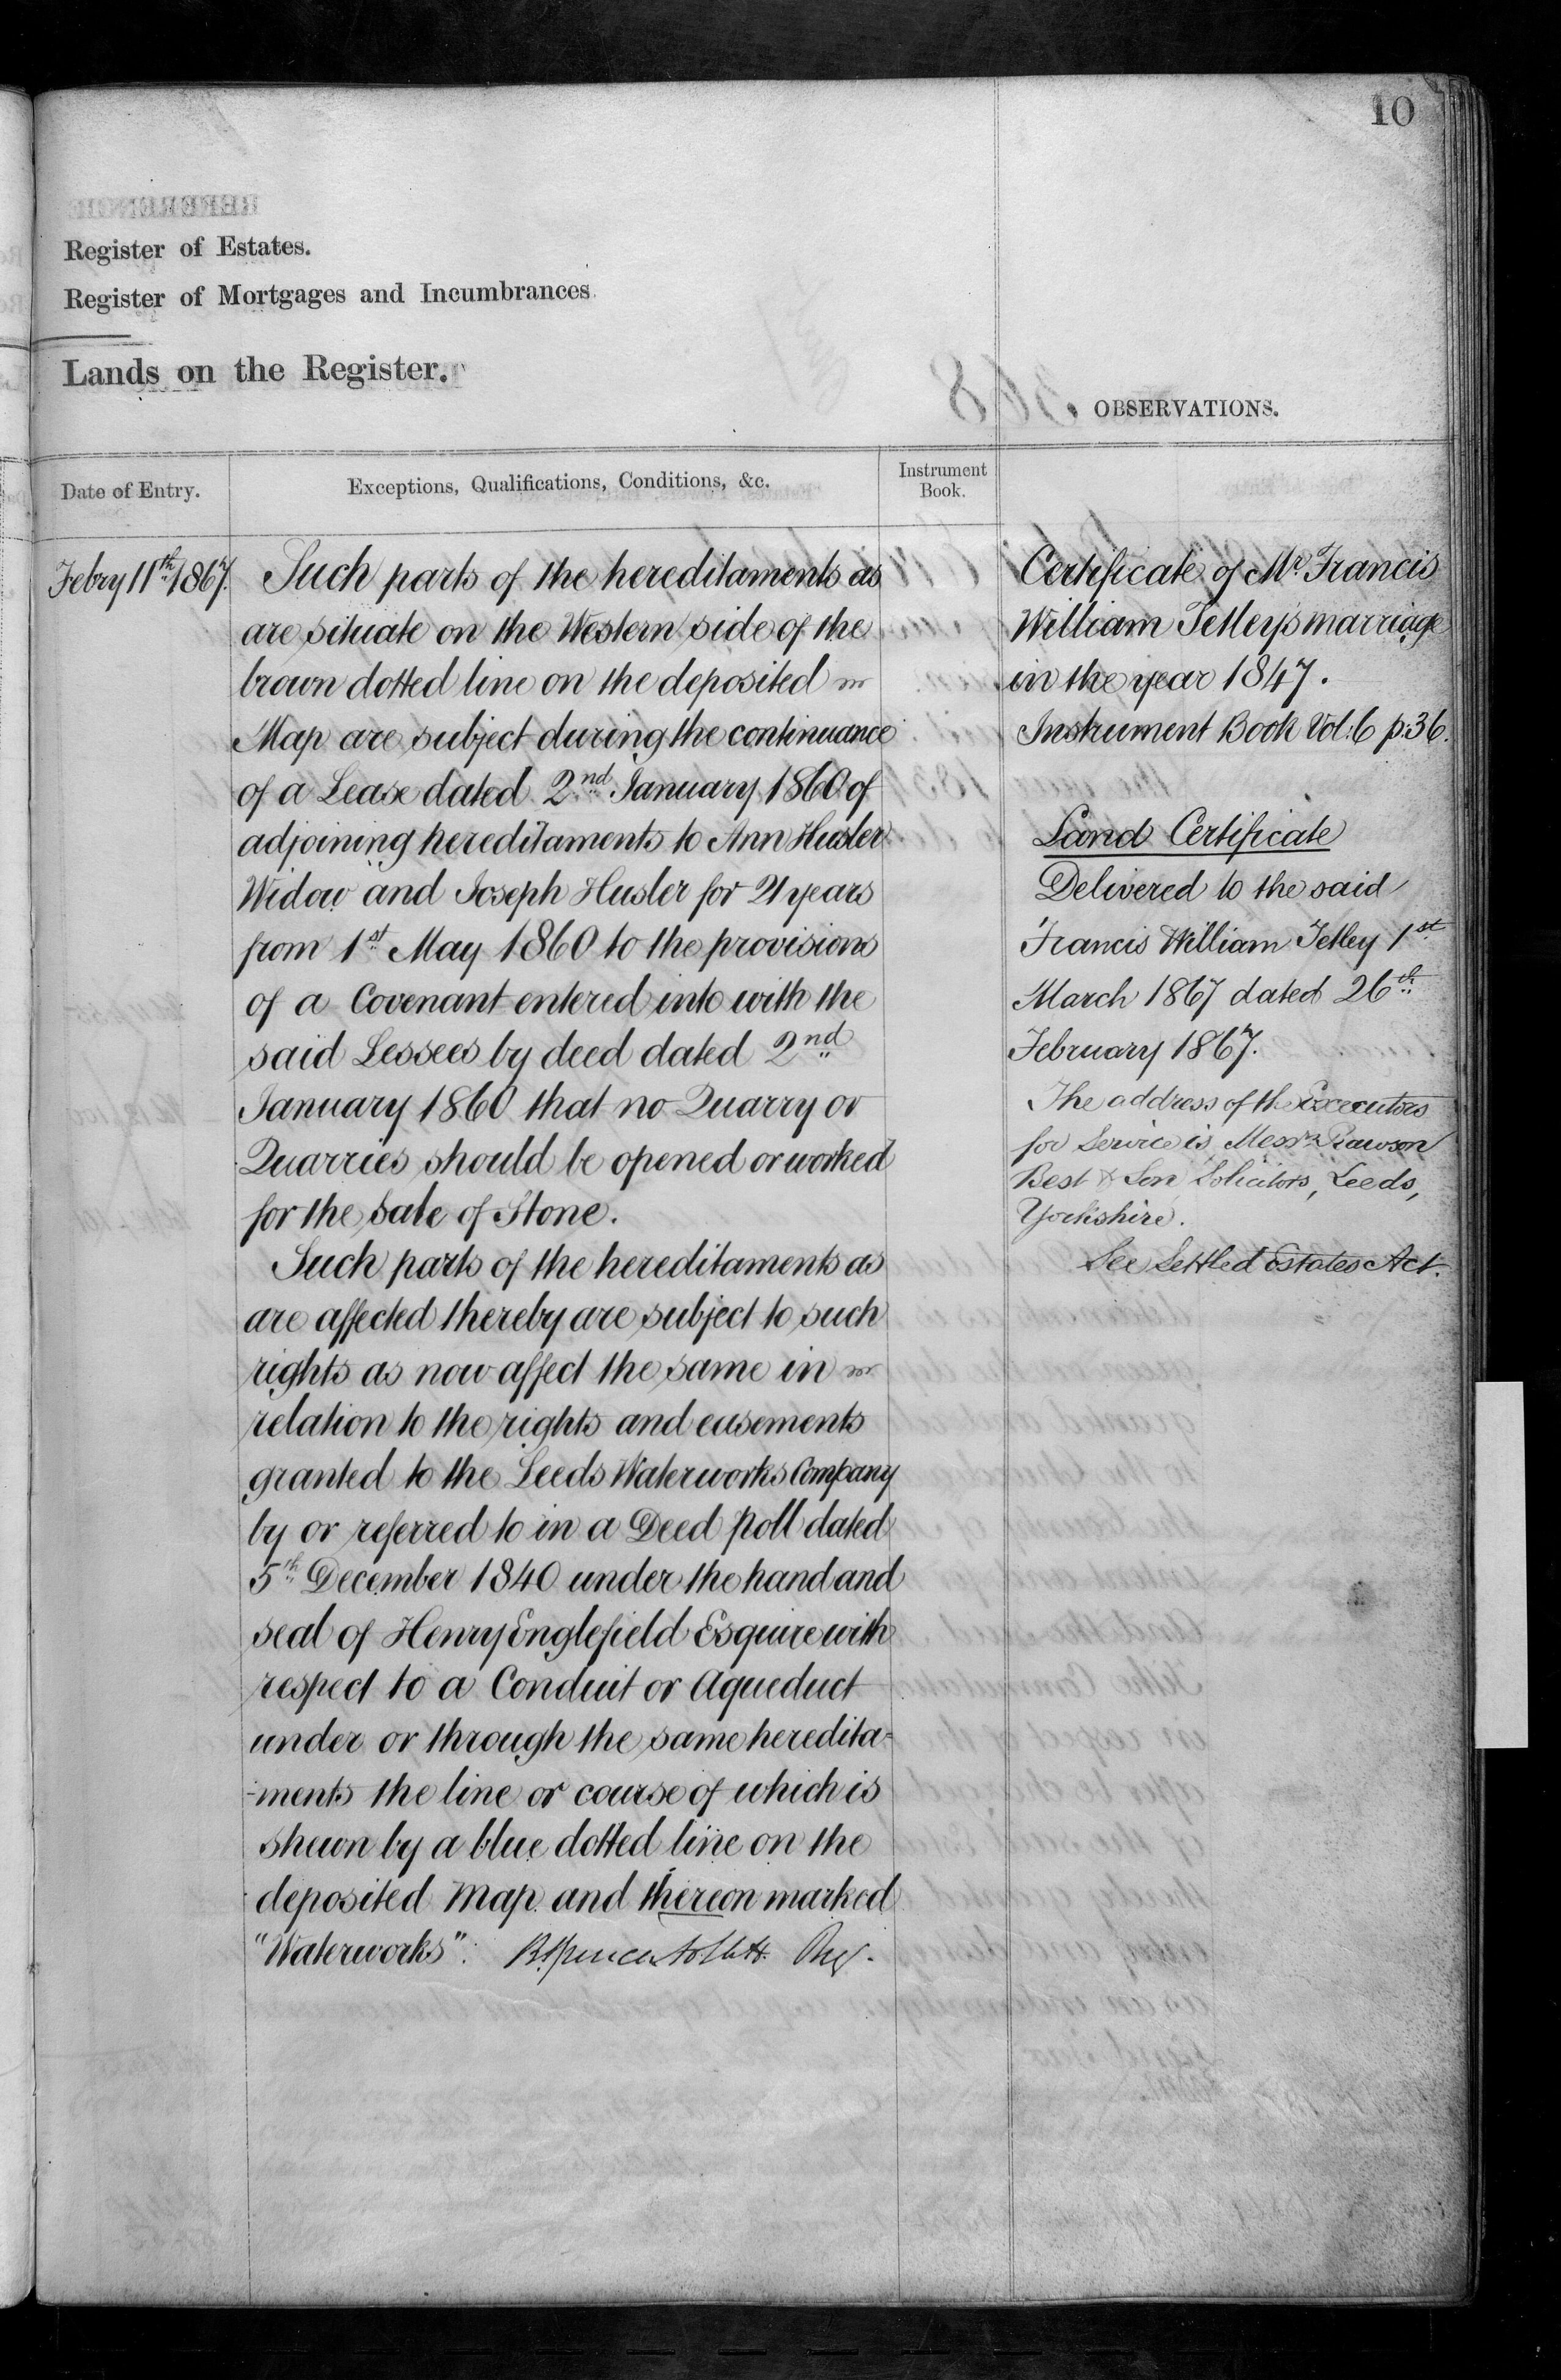 10
Register of Estates.
Register of Mortgages and Incumbrances.
Lands on the Register.
OBSERVATIONS.
Date of Entry.
Exceptions, Qualifications, Conditions, &c.
Instrument
Book.
Febry 11th 1867.
Such parts of the hereditaments as
are situate on the Western side of the
brown dotted line on the deposited
Map are subject during the continuance
of a Lease dated 2nd January 1860 of
adjoining hereditaments to Ann Husler
Widow and Joseph Husler for 21 years
from 1st May 1860 to the provisions
of a Covenant entered into with the
said Lessees by deed dated 2nd
January 1860 that no Quarry or
Quarries should be opened or worked
for the sale of Stone.
Such parts of the hereditaments as
are affected thereby are subject to such
rights as now affect the same in
relation to the rights and easements
granted to the Leeds Waterworks Company
by or referred to in a Deed poll dated
5th December 1840 under the hand and
seal of Henry Englefield Esquire with
respect to a Conduit or Aqueduct
under or through the same heredita=
-ments the line or course of which is
shewn by a blue dotted line on the
deposited Map and thereon marked
"Waterworks".
Certificate of Mr. Francis
William Tetley's marriage
in the year 1847.
Instrument Book Vol: 6 p: 36.
Land Certificate
Delivered to the said
Francis William Tetley 1st
March 1867 dated 26th
February 1867.
The address of the Executors
for Service is Messrs Rawson
Best & Son Solicitors, Leeds,
Yorkshire.
See Settled Estates Act.